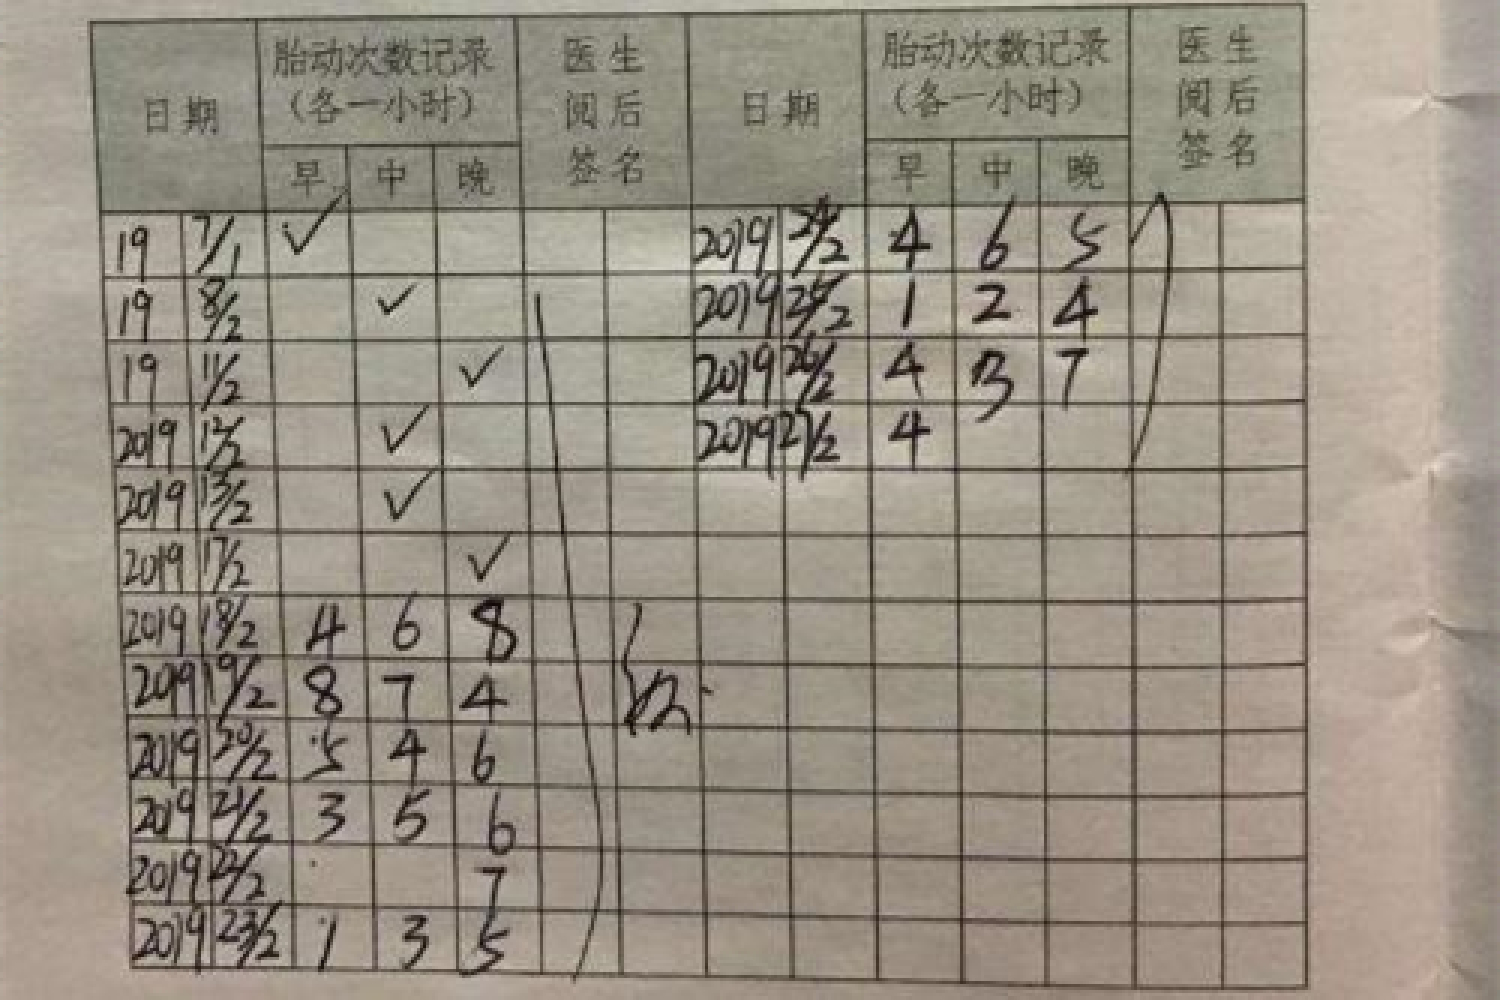 日期 胎动次数记录（各一小时） 医生阅后签名 日期 胎动次数记录（各一小时） 医生阅后签名
早 中 晚 早 中 晚
19 7/1 ✓ 2019 24/2 4 6 5
19 8/2 ✓ 2019 25/2 1 2 4
19 11/2 ✓ 2019 26/2 4 3 7
2019 12/2 ✓ 2019 27/2 4
2019 13/2 ✓
2019 17/2 ✓
2019 18/2 4 6 8
2019 19/2 8 7 4
2019 20/2 5 4 6
2019 21/2 3 5 6
2019 22/2 7
2019 23/2 1 3 5